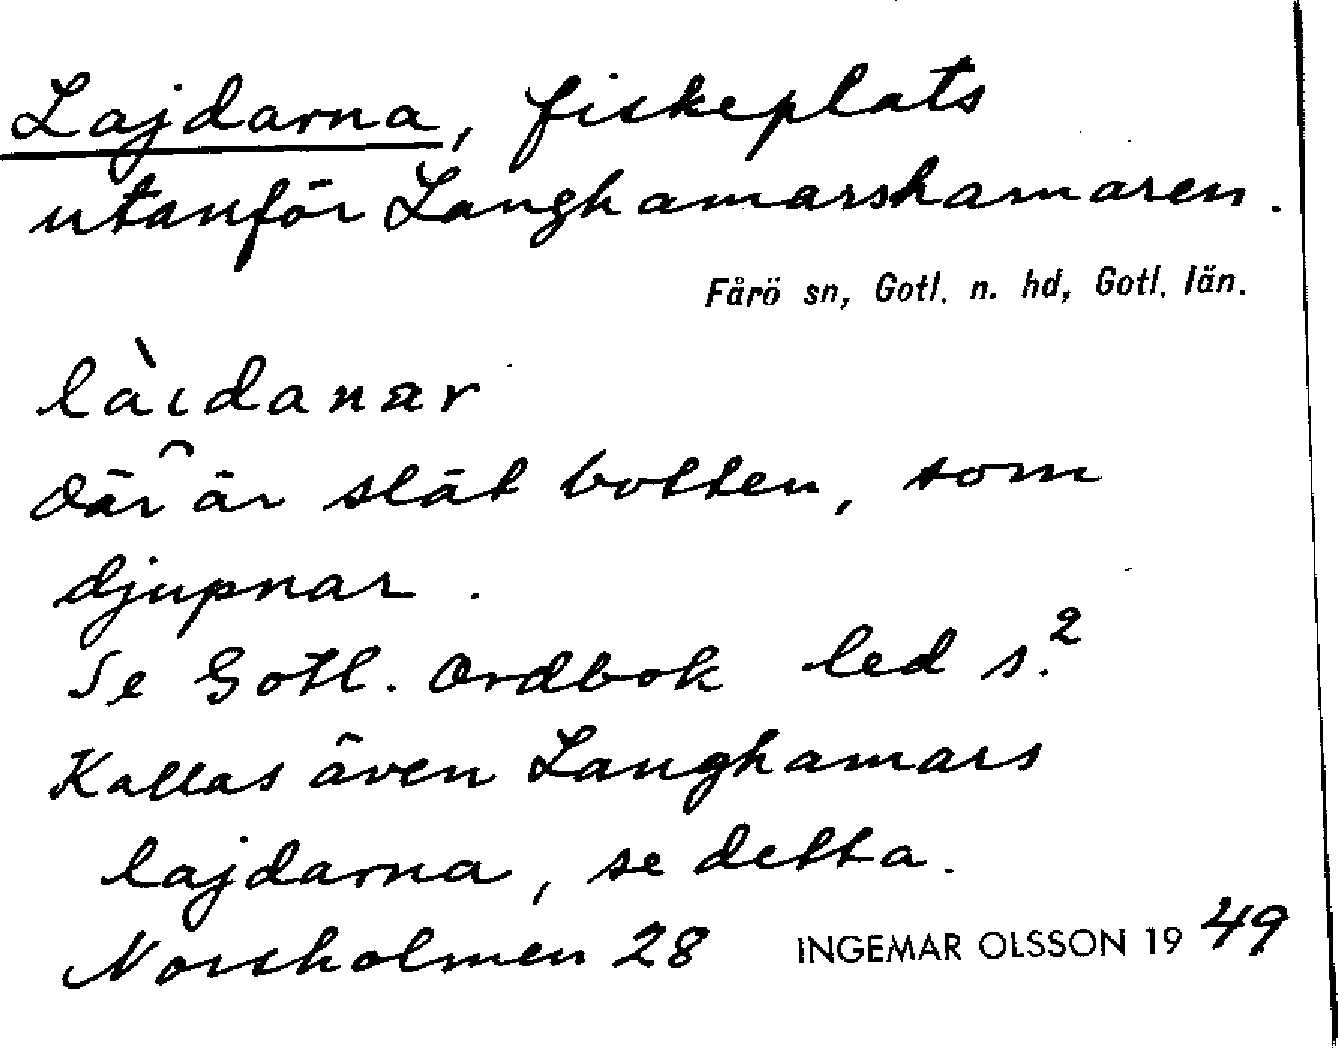 Lajdarna, fiskeplats
utanför Langhamarshamaren.
Fårö sn, Gotl. n. hd, Gotl. län.
là̯idanar
där är slät botten, som
djupnar.
Se Gotl. Ordbok led s.²
Kallas även Langhamars
lajdarna, se detta.
Norsholmen 28 INGEMAR OLSSON 1949